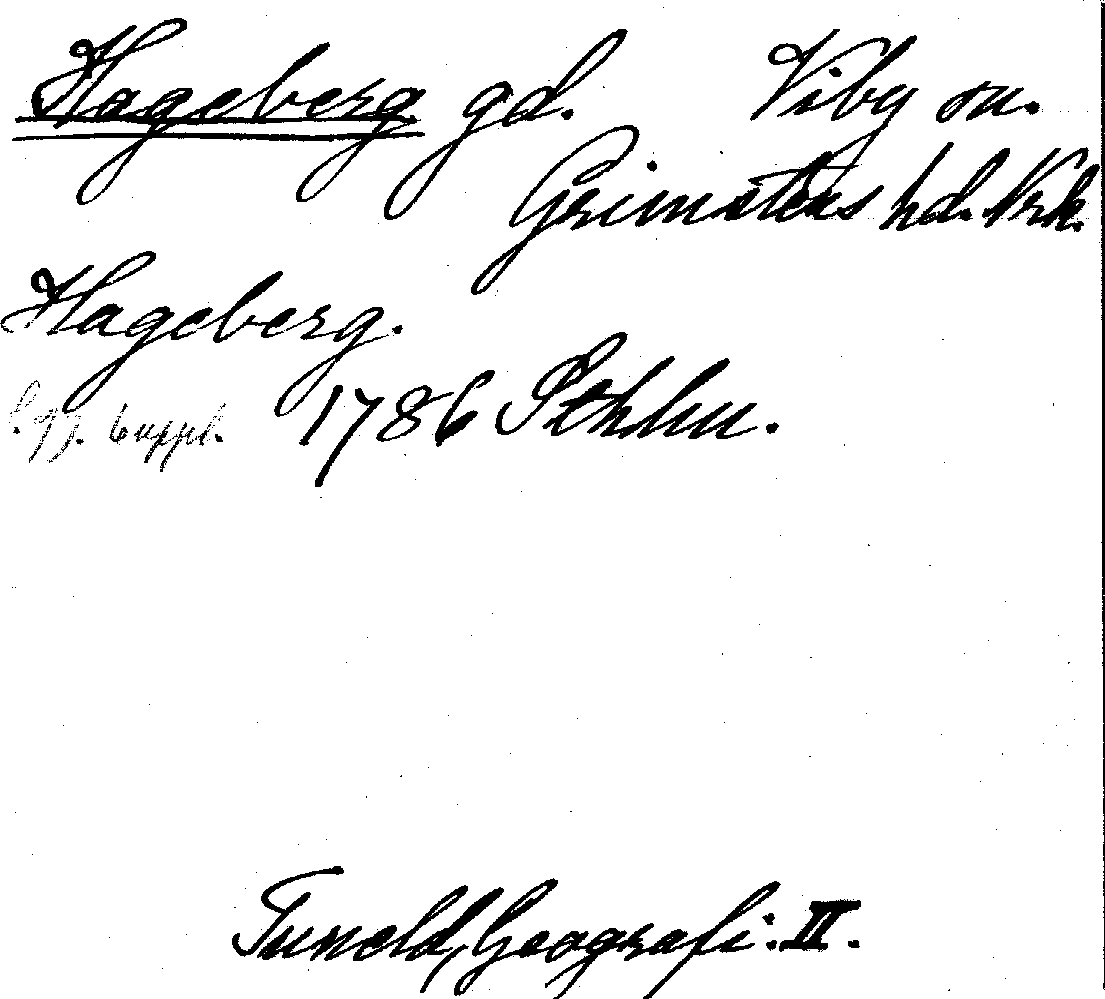 Hageberg gd. Viby sn.
Grimstens hd. Nrk.
Hageberg.
s. 77. 6 uppl. 1786 Sthlm.
Tuneld, Geografi. II.